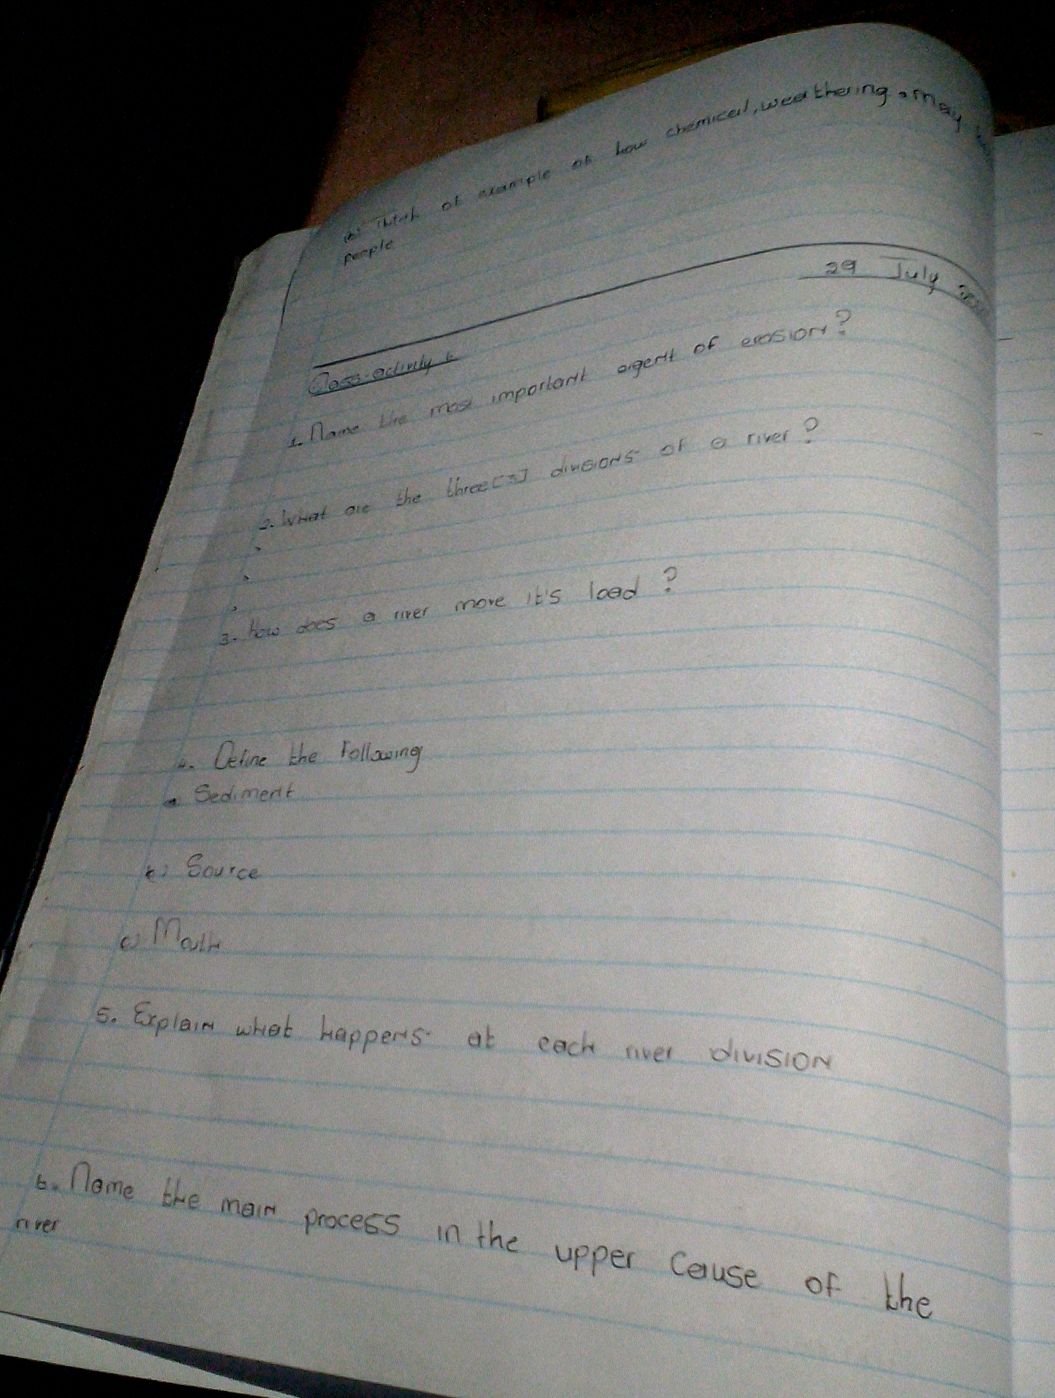 of example of how chemical, weathering, may
people
29 July
Class activity
1. Name the most important agent of erosion?
2. What are the three [3] divisions of a river?
3. How does a river move it's load?
4. Define the Following
Sediment
b) Source
c) Mouth
5. Explain what happens at each river division
6. Name the main process in the upper Cause of the
river